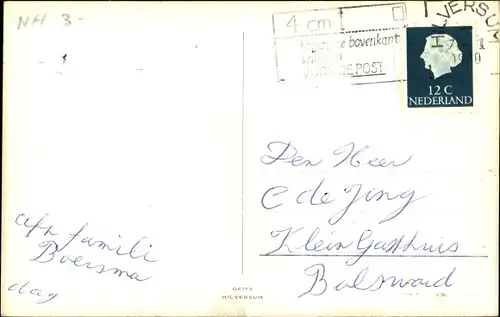 NH 3-
4 cm
bovenkant
POST
HILVERSUM
12 C
NEDERLAND
Den Heer
C de Jing
Klein Gasthuis
Bolsward
afz famili
Boersma
dag
HILVERSUM